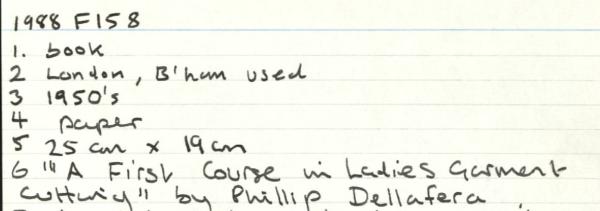 1988 F158
1. book
2 London, B'ham used
3 1950's
4 paper
5 25 cm x 19 cm
6 "A First Course in Ladies Garment
Cutting" by Phillip Dellafera